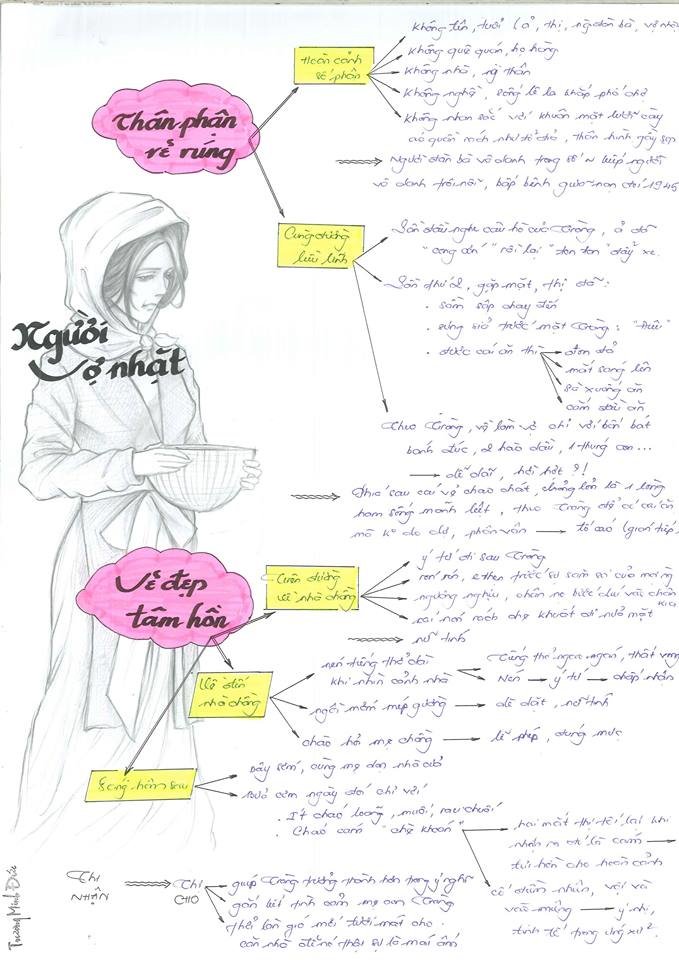 Thân phận
rẻ rúng
Hoàn cảnh
số phận
không tên, tuổi (ả, thị, người đàn bà, vợ nhặt
không quê quán, họ hàng
không nhà, người thân
không nghề, sống lê la khắp phố chợ
không nhan sắc với khuôn mặt lưỡi cày
áo quần rách như tổ đỉa, thân hình gầy sọp
Người đàn bà vô danh trong số N kiếp người
vô danh trôi nổi, bấp bênh giữa nạn đói 1945
Cùng đường
liều lĩnh
Lần đầu nghe câu hò của Tràng, ả đã
"cong cớn" rồi lại "ton ton" đẩy xe.
Lần thứ 2, gặp mặt, thị đã:
. sầm sập chạy đến
. sưng sỉa trước mặt Tràng: "Điêu"
. được cái ăn thì
đon đả
mắt sáng lên
sà xuống ăn
cắm đầu ăn
Theo Tràng, về làm vợ chỉ với bốn bát
bánh đúc, 2 hào dầu, 1 thúng con...
dễ dãi, hời hợt ?!
Phía sau cái vẻ chao chát, chỏng lỏn là 1 lòng
ham sống mãnh liệt, theo Tràng để có cái ăn
mà ko do dự, phân vân
tố cáo (gián tiếp)
Người
vợ nhặt
Vẻ đẹp
tâm hồn
Trên đường
về nhà chồng
ý tứ đi sau Tràng
rón rén, e thẹn trước sự săm soi của mọi ng
ngượng nghịu, chân nọ bước díu vào chân
kia
cái nón rách che khuất đi nửa mặt
nữ tính
Về đến
nhà chồng
nén tiếng thở dài
khi nhìn cảnh nhà
Cũng thở ngao ngán, thất vọng
Nén
ý tứ
chấp nhận
ngồi mớm mép giường
dè dặt, nữ tính
chào hỏi mẹ chồng
lễ phép, đúng mực
Sáng hôm sau
Dậy sớm, cùng mẹ dọn nhà cửa
Bữa cơm ngày đói chỉ với
. Ít cháo loãng, muối, rau chuối
. Cháo cám "chè khoán"
hai mắt thị tối lại khi
nhận ra đó là cám
tủi hờn cho hoàn cảnh
cố điềm nhiên, và vội
vào miệng
ý nhị,
tinh tế trong ứng xử
Thị
NHẬN
Thị
CHO
giúp Tràng trưởng thành hơn trong ý nghĩ
gắn kết tình cảm mẹ con Tràng
thổi làn gió mới tươi mát cho
căn nhà để nó thật sự là mái ấm
Trương Minh Đức